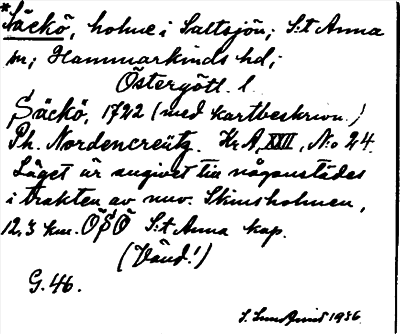 *Säckö, holme i Saltsjön; S:t Anna
sn; Hammarkinds hd;
Östergötl. l.
Säckö, 1722 (med kartbeskrivn.)
Ph. Nordencreütz. Kr. A, XXII, No 24.
Läget är angivet till någonstädes
i trakten av nuv. Skinsholmen,
12,3 km. ÖSÖ S:t Anna kap.
(Vänd!)
G. 46.
S. Lundqvist 1936